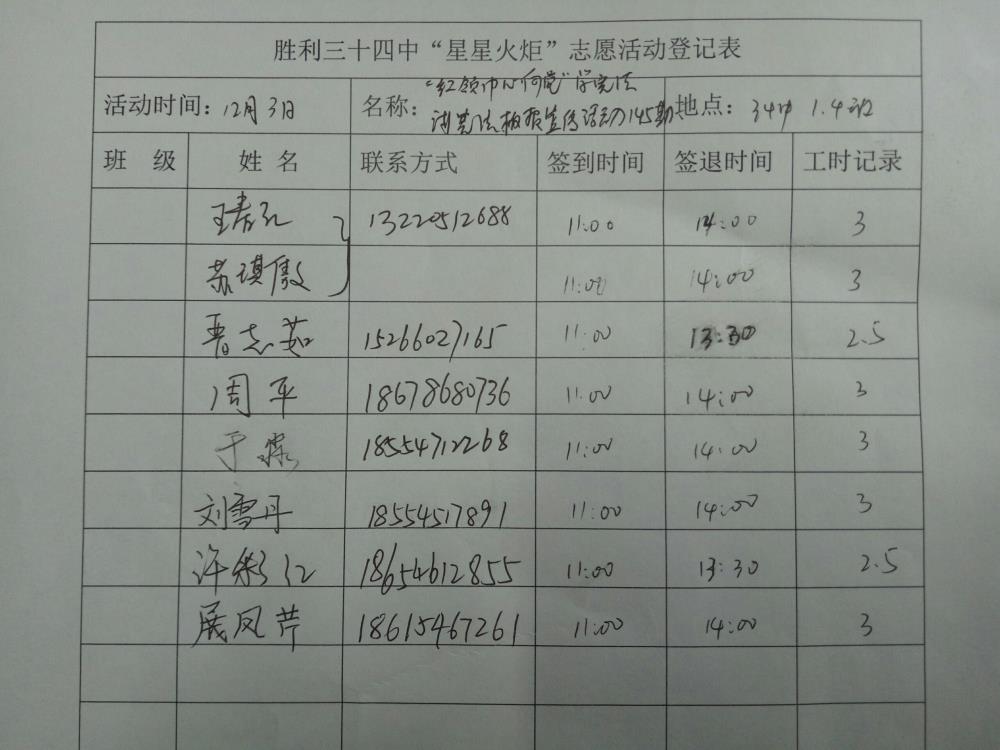 胜利三十四中“星星火炬”志愿活动登记表
活动时间：12月3日 名称：“红领巾心向党”学宪法 地点：34中 1.4班
讲宪法板报宣传活动145勤
班 级 姓 名 联系方式 签到时间 签退时间 工时记录
13220512688 11:00 14:00 3
苏琪傲 11:00 14:00 3
晋志茹 15266027165 11:00 13:30 2.5
周平 18678680736 11:00 14:00 3
于霖 18554712268 11:00 14:00 3
刘雪丹 18554517891 11:00 14:00 3
许彩红 18654612855 11:00 13:30 2.5
展风芹 18615467261 11:00 14:00 3